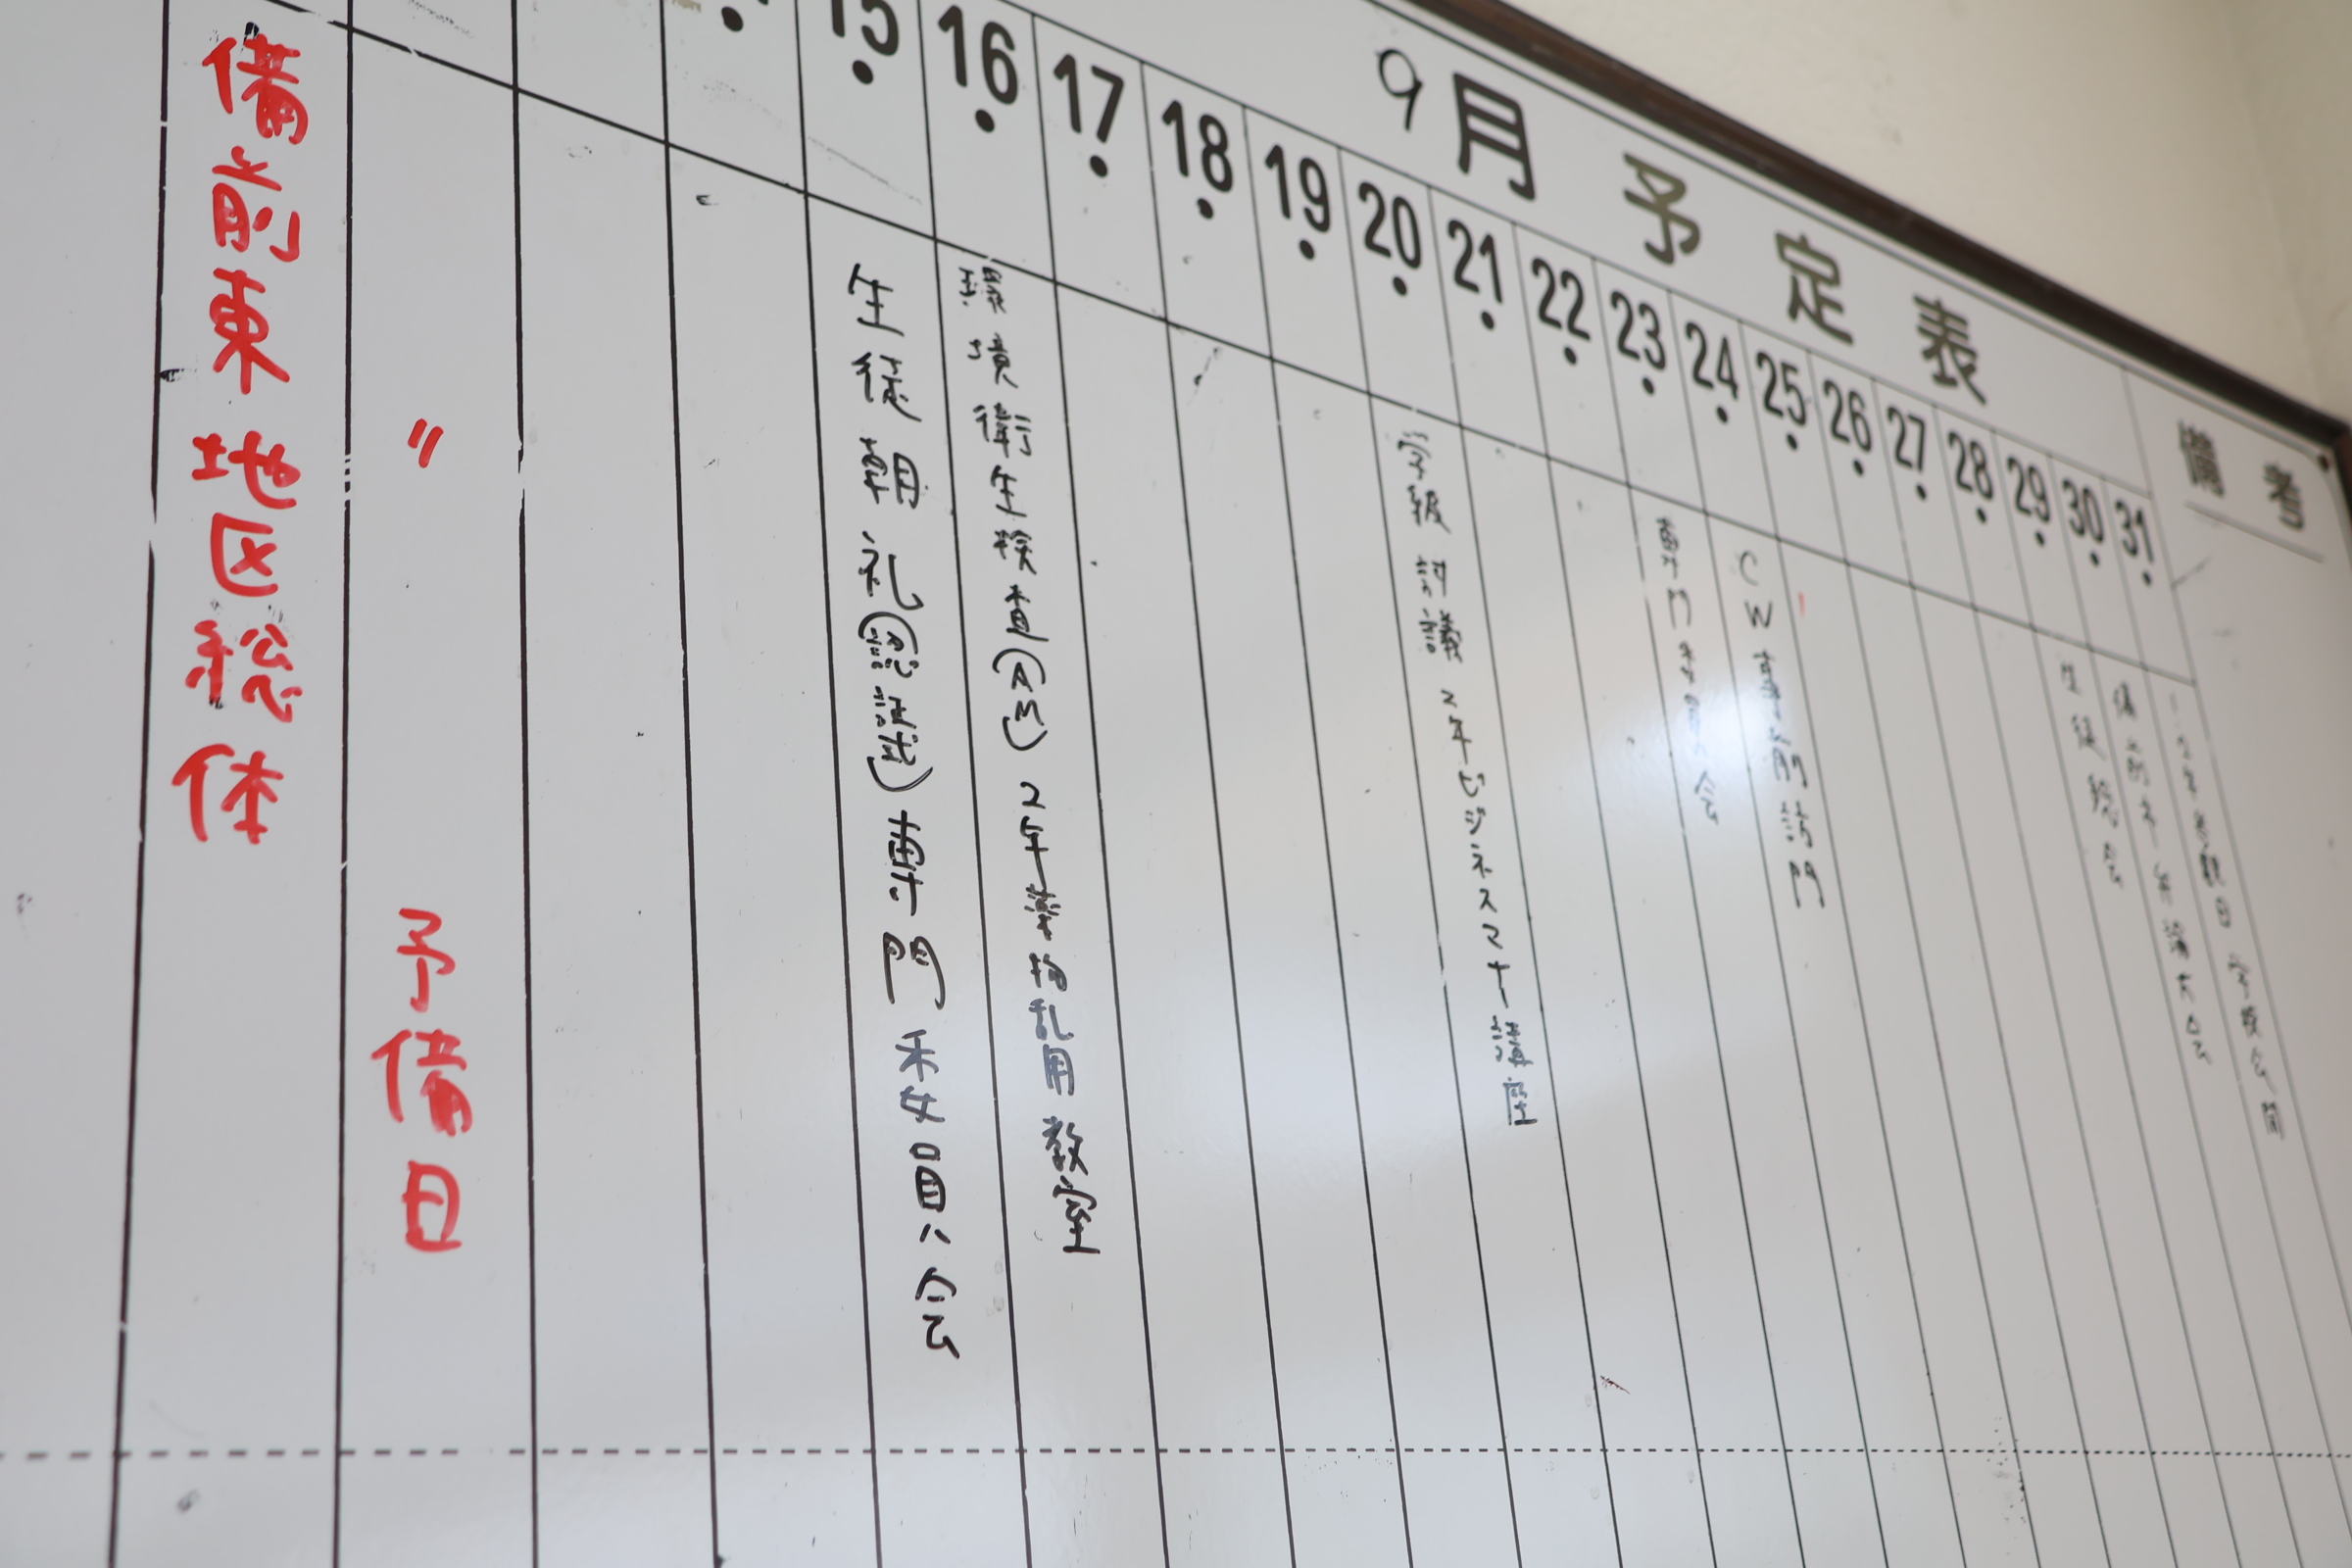 9月予定表
備考
15
16
17
18
19
20
21
22
23
24
25
26
27
28
29
30
31
備前東地区総体
〃 予備日
生徒理 専門委員会
環境衛生検査(AM) 2年薬物乱用教室
学級討議 2年ビジネスマナー講座
専門 会
CW 前訪門
生徒総会
大会
学校公開